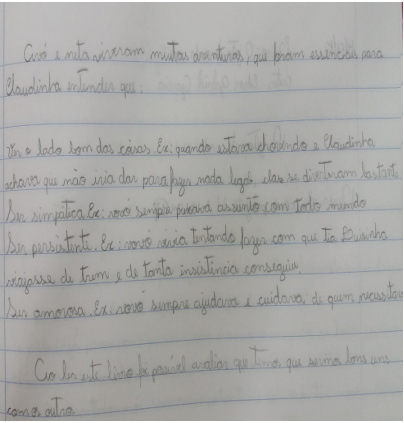 Avó e neta viveram muitas aventuras, que foram essenciais para
Claudinha entender que:
Ver o lado bom das coisas. Ex: quando estava chovendo e Claudinha
achava que não iria dar para fazer nada legal, elas se divertiram bastante
Ser simpática. Ex: vovó sempre puxava assunto com todo mundo
Ser persistente. Ex: vovó vivia tentando fazer com que Tia
viajasse de trem e de tanta insistência conseguiu.
Ser amorosa. Ex: vovó sempre ajudava e cuidava de quem
Ao ler este livro foi possível analisar que temos que sermos bons uns
com os outro